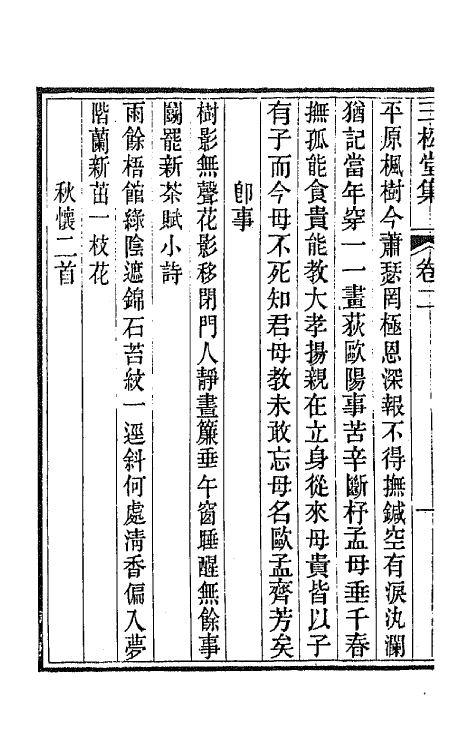 三松堂集 卷二 一
平原楓樹今蕭瑟罔極恩深報不得撫鍼空有淚汍瀾
猶記當年穿一一畫荻歐陽事苦辛斷杼孟母垂千春
撫孤能食貴能教大孝揚親在立身從來母貴皆以子
有子而今母不死知君母教未敢忘母名歐孟齊芳矣
卽事
樹影無聲花影移閉門人靜晝簾垂午窗睡醒無餘事
鬭罷新茶賦小詩
雨餘梧館綠陰遮錦石苔紋一逕斜何處淸香偏入夢
階蘭新茁一枝花
秋懷二首